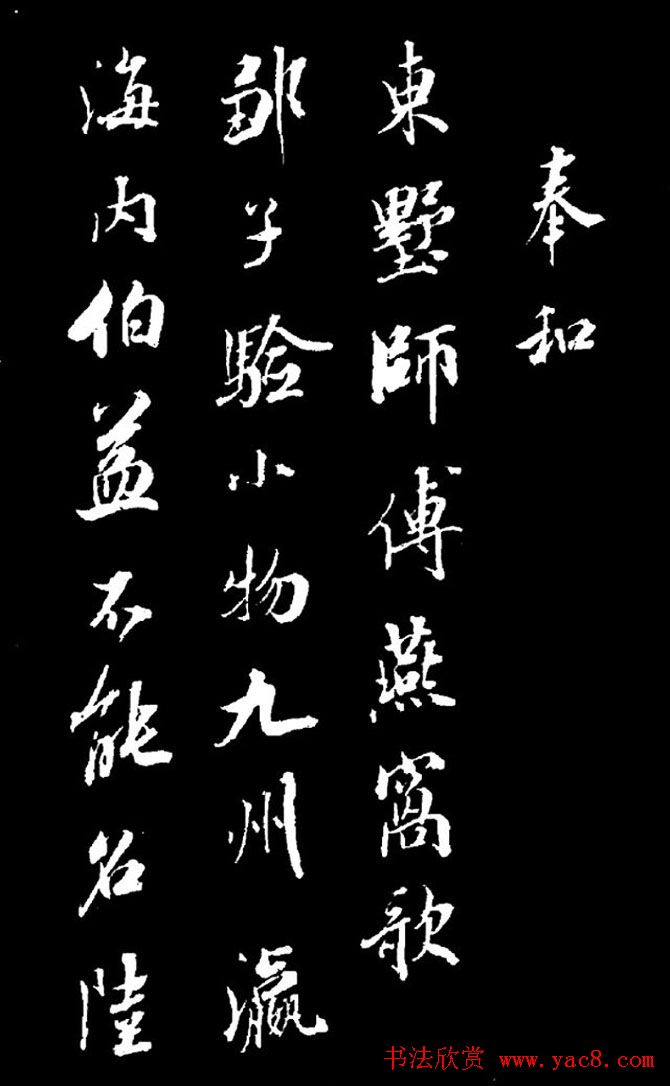 奉和
東墅師傅燕窩歌
鄒子驗小物九州瀛
海内伯益不能名陸
书法欣赏 www.yac8.com